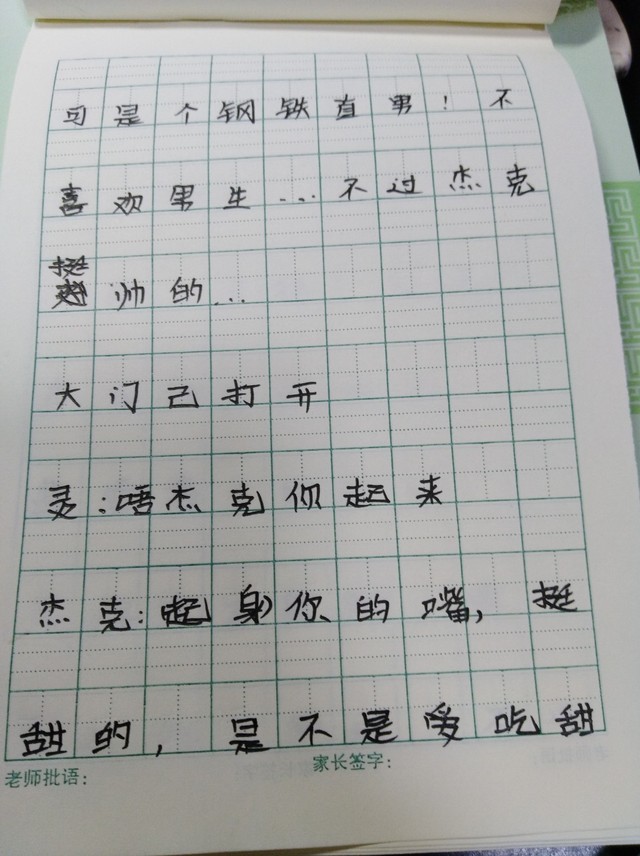 可是个钢铁直男！不
喜欢男生…不过杰克
挺帅的…
大门己打开
灵：唔杰克你起来
杰克：(起身)你的嘴，挺
甜的，是不是爱吃甜
老师批语：
家长签字：